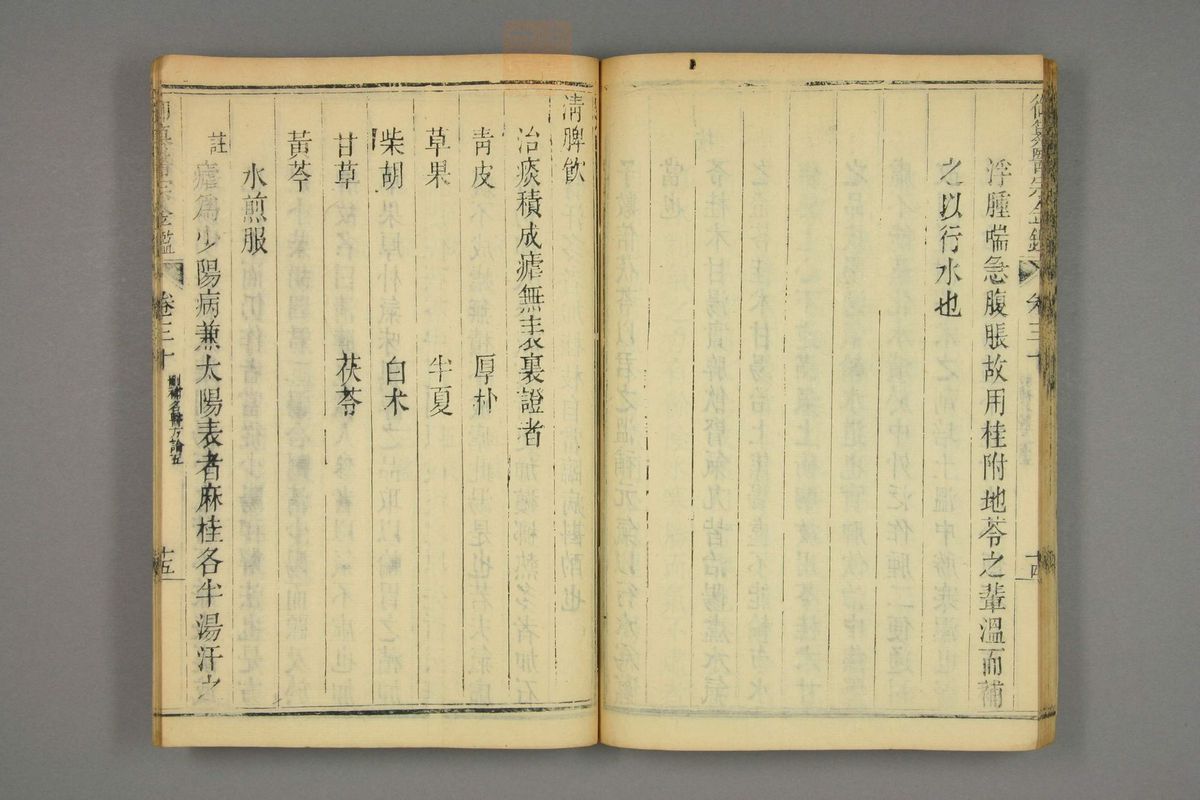 御纂醫宗金鑑
卷三十
十四
浮腫喘急腹脹故用桂附地苓之輩溫而補
之以行水也
淸脾飮
治痰積成瘧無表裏證者
靑皮　厚朴
草果　半夏
柴胡　白朮
甘草　茯苓
黃芩
水煎服
註
瘧爲少陽病兼太陽表者麻桂各半湯汗之
御纂醫宗金鑑
卷三十
刪補名醫方論五
十五